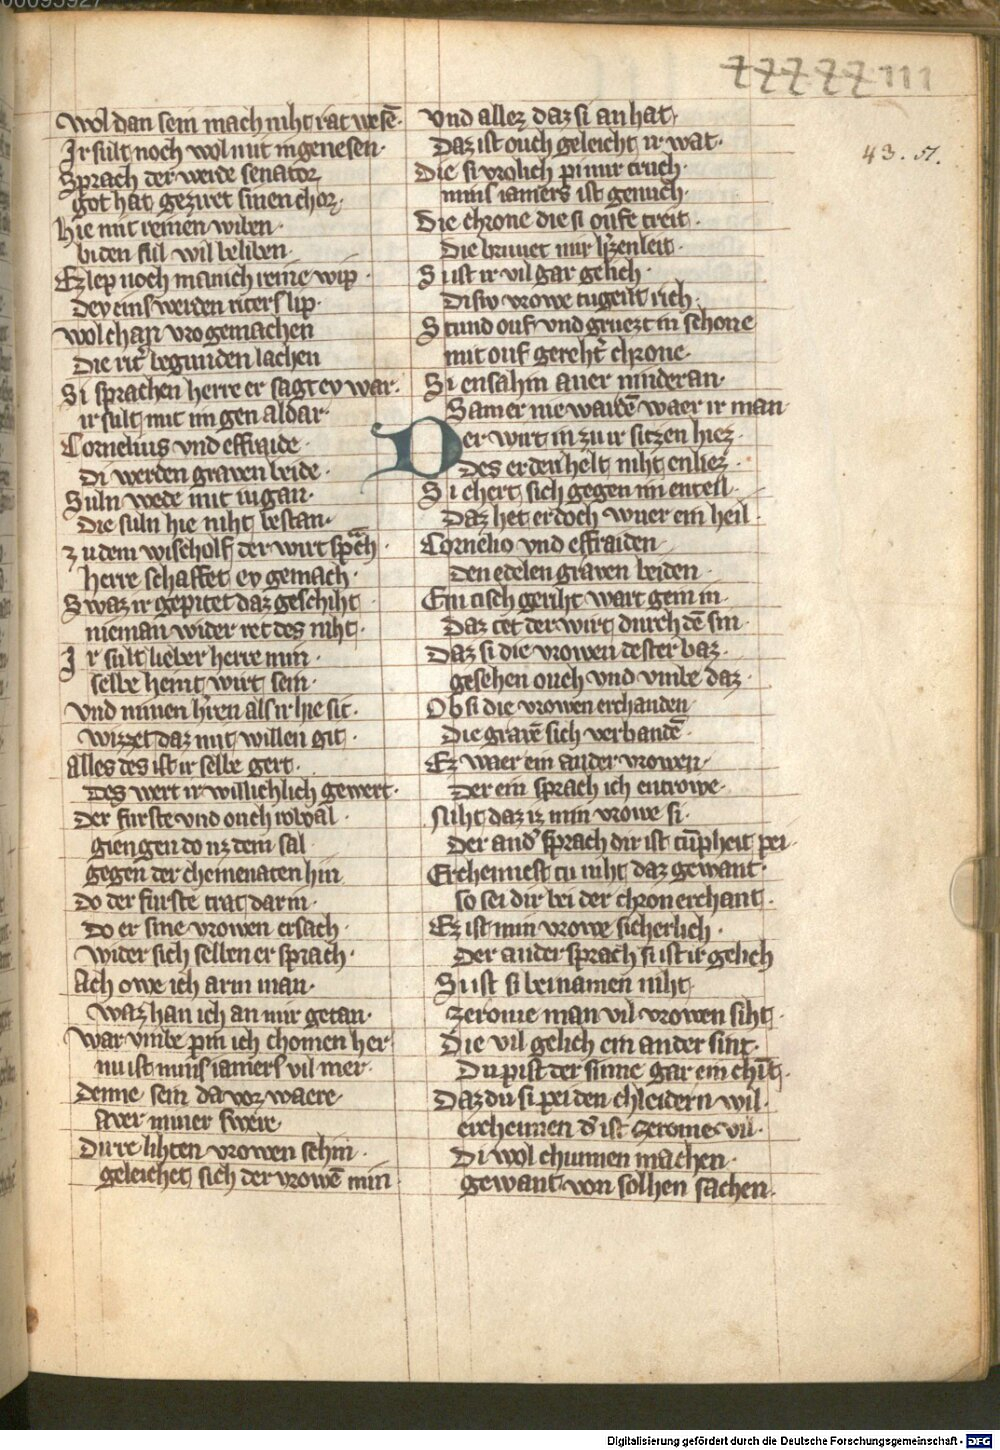 wol dan sein mach niht rat wesē·
Ir sult noch wol mit in genesen·
Sprach der werde senator
got hat geziret sinen chor·
hie mit reinen wiben·
biden sul wil beliben·
Ez lep noch manich reine wip·
Dev eins werden riters lip·
wol chan vro gemachen
Die rit̄ begunden lachen
Si sprachen herre er sagt ev war·
ir sult mit im gen aldar·
Cornelius vnd effraide·
Di werden graven beide·
Suln wede mit iu gan·
Die suln hie niht bestan·
zu dem wischolf der wirt sp̄ch·
herre schaffet ev gemach·
Swaz ir gepitet daz geschiht
nieman wider ret des niht·
Ir sult lieber herre min·
selbe heint wirt sein·
vnd minen h̄ren als ir hie sit·
wizzet daz mit willen git·
Alles des ist ir selbe gert·
Des wert ir willichlich gewert·
Der furste vnd ouch
giengen do uz dem sal
gegen der chemenaten hin
Do der furste trat dar in·
Do er sine vrowen ersach·
wider sich selben er sprach·
Ach owe ich arm man·
waz han ich an mir getan·
war vmbe pin ich chomen her
nu ist mins iamers vil mer·
Denne sein da vor waere·
Aver miner swere
Dirre lihten vrowen schin·
geleichet sich der vrowē min
vnd allez daz si an hat
Daz ist ouch geleicht ir wat·
Die si vrolich pi mir truch·
mins iamers ist genuch·
Die chrone die si oufe treit·
Die bruuet mir h̄zenleit·
Si ist ir vil gar gelich·
Disiv vrowe tugent rich·
Stund ouf vnd gruezt in schone
mit ouf gereht̄ chrone·
Si ensah in aver minder an·
Samer nie wardē waer ir man
Der wirt in zu ir sitzen hiez·
Des er den helt niht enliez·
Si chert sich gegen im enteil·
Daz het er doch wuer ein heil·
Cornelio vnd effraiden
Den edelen graven beiden·
Ein tisch geriht wart gein in·
Daz tet der wirt durch dē sin·
Daz si die vrowen dester baz·
gesehen ouch vnd vmbe daz·
Ob si die vrowen erchanden
Die gravē sich verbandē·
Ez waer ein ander vrowen·
Der ein sprach ich entrowe·
Niht daz iz min vrowe si·
Der and̄ sprach dir ist tūpheit pei·
Erchennest tu niht daz gewant·
so sei dir bei der chron erchant·
Ez ist min vrowe sicherlich·
Der ander sprach si ist ir gelich
Si ist si beinamen niht
zerome man vil vrowen siht·
Die vil gelich ein ander sint·
Du pist der sinne gar ein chīt·
Daz du si pei den chleidern wil·
erchennen d̄ ist zerome vil·
Di wol chunnen machen·
gewant von solhen sachen·
43. 51.
Digitalisierung gefördert durch die Deutsche Forschungsgemeinschaft - DFG